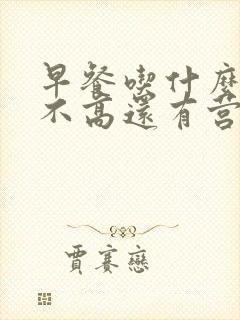 早餐喫什麼
不高還有營
賈賽戀